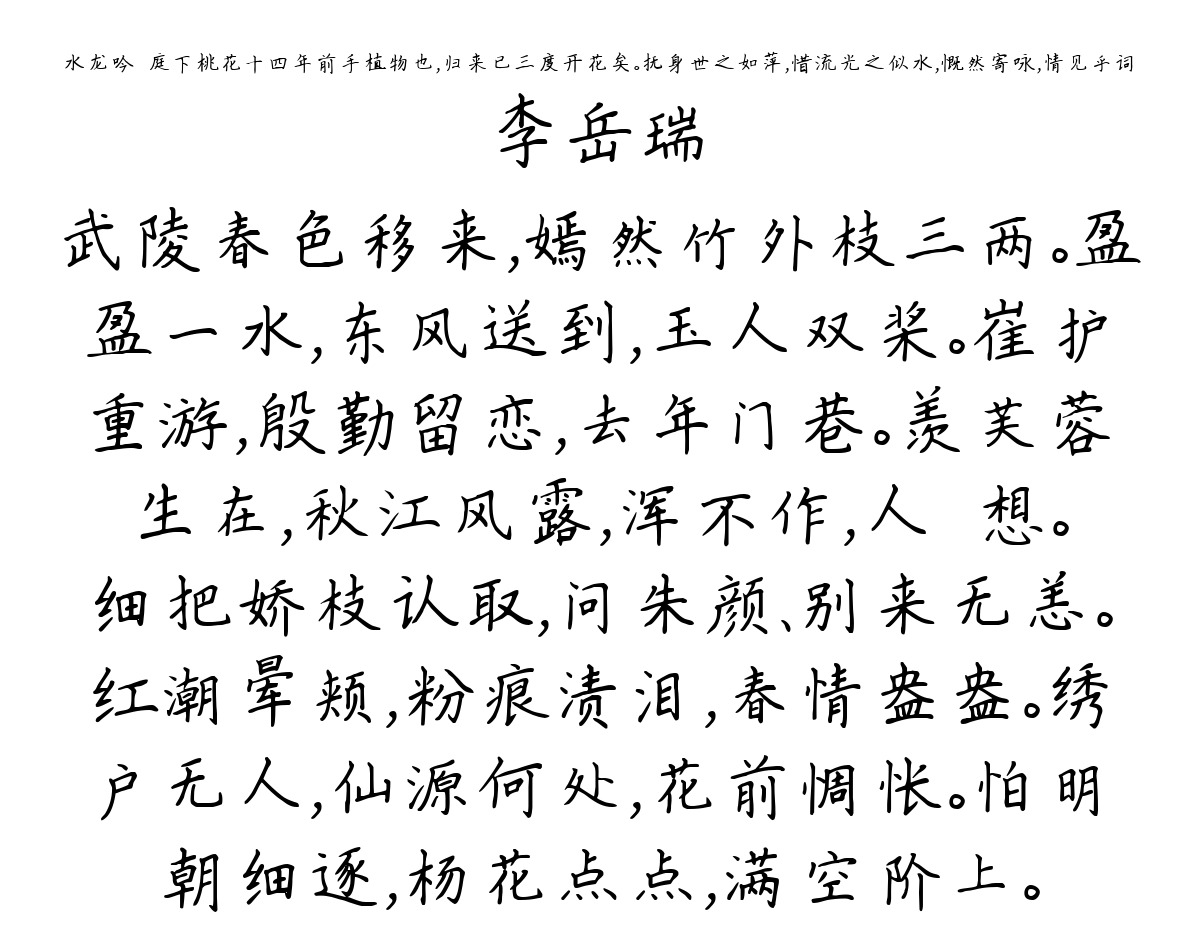 水龙吟 庭下桃花十四年前手植物也,归来已三度开花矣。抚身世之如萍,惜流光之似水,慨然寄咏,情见乎词
李岳瑞
武陵春色移来,嫣然竹外枝三两。盈
盈一水,东风送到,玉人双桨。崔护
重游,殷勤留恋,去年门巷。羡芙蓉
生在,秋江风露,浑不作,人 想。
细把娇枝认取,问朱颜、别来无恙。
红潮晕颊,粉痕渍泪,春情盎盎。绣
户无人,仙源何处,花前惆怅。怕明
朝细逐,杨花点点,满空阶上。